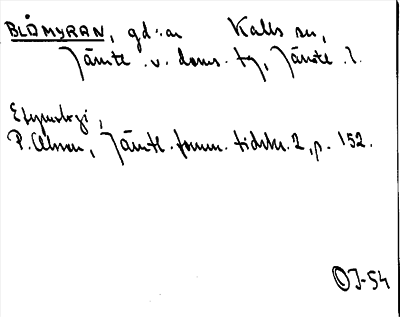 BLÅMYRAN, gd:an Kalls sn,
Jämtl. v. doms. tg, Jämtl. l.
Etymologi,
P. Olsson, Jämtl. fornm. tidskr. 2, p. 152.
OJ-54